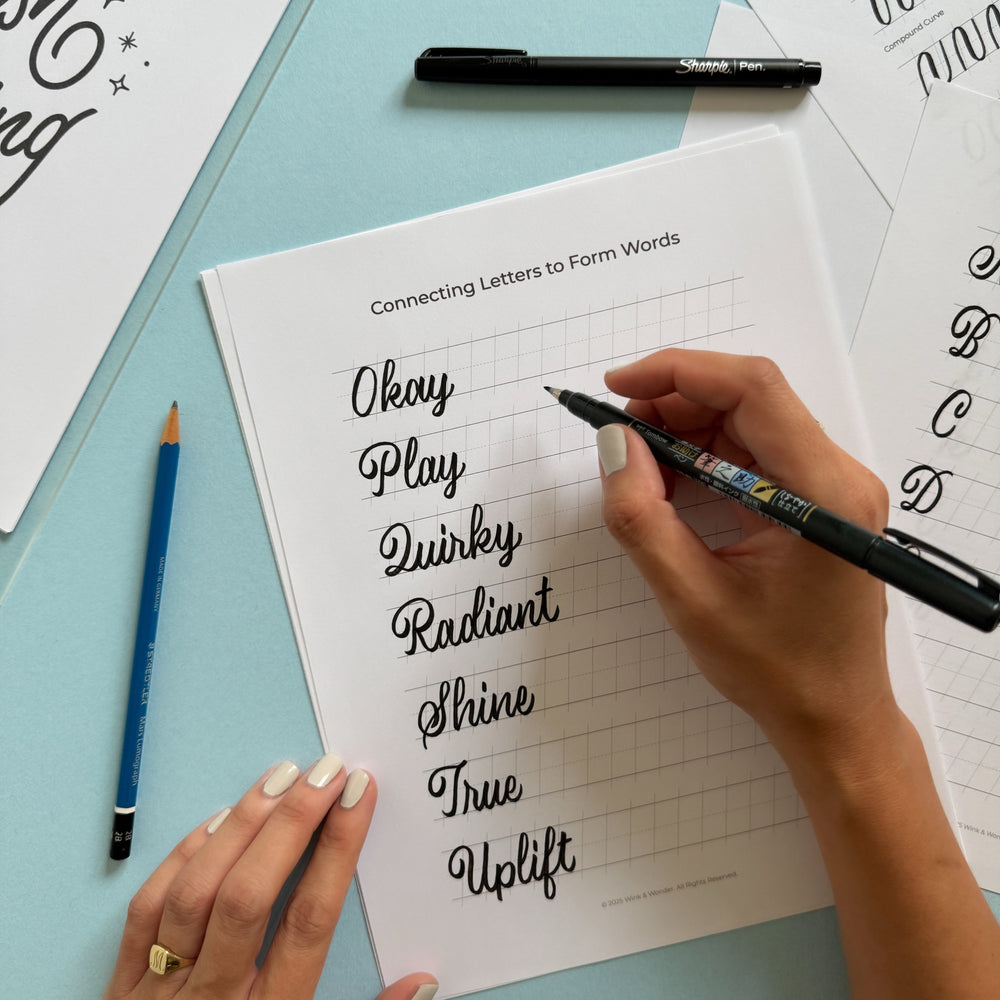 ng
Sharpie. Pen.
Compound Curve
Connecting Letters to Form Words
Okay
Play
Quirky
Radiant
Shine
True
Uplift
© 2025 Wink & Wonder. All Rights Reserved.
B
C
D
Tombow
MADE IN GERMANY
STAEDTLER Mars Lumograph
2B
2B